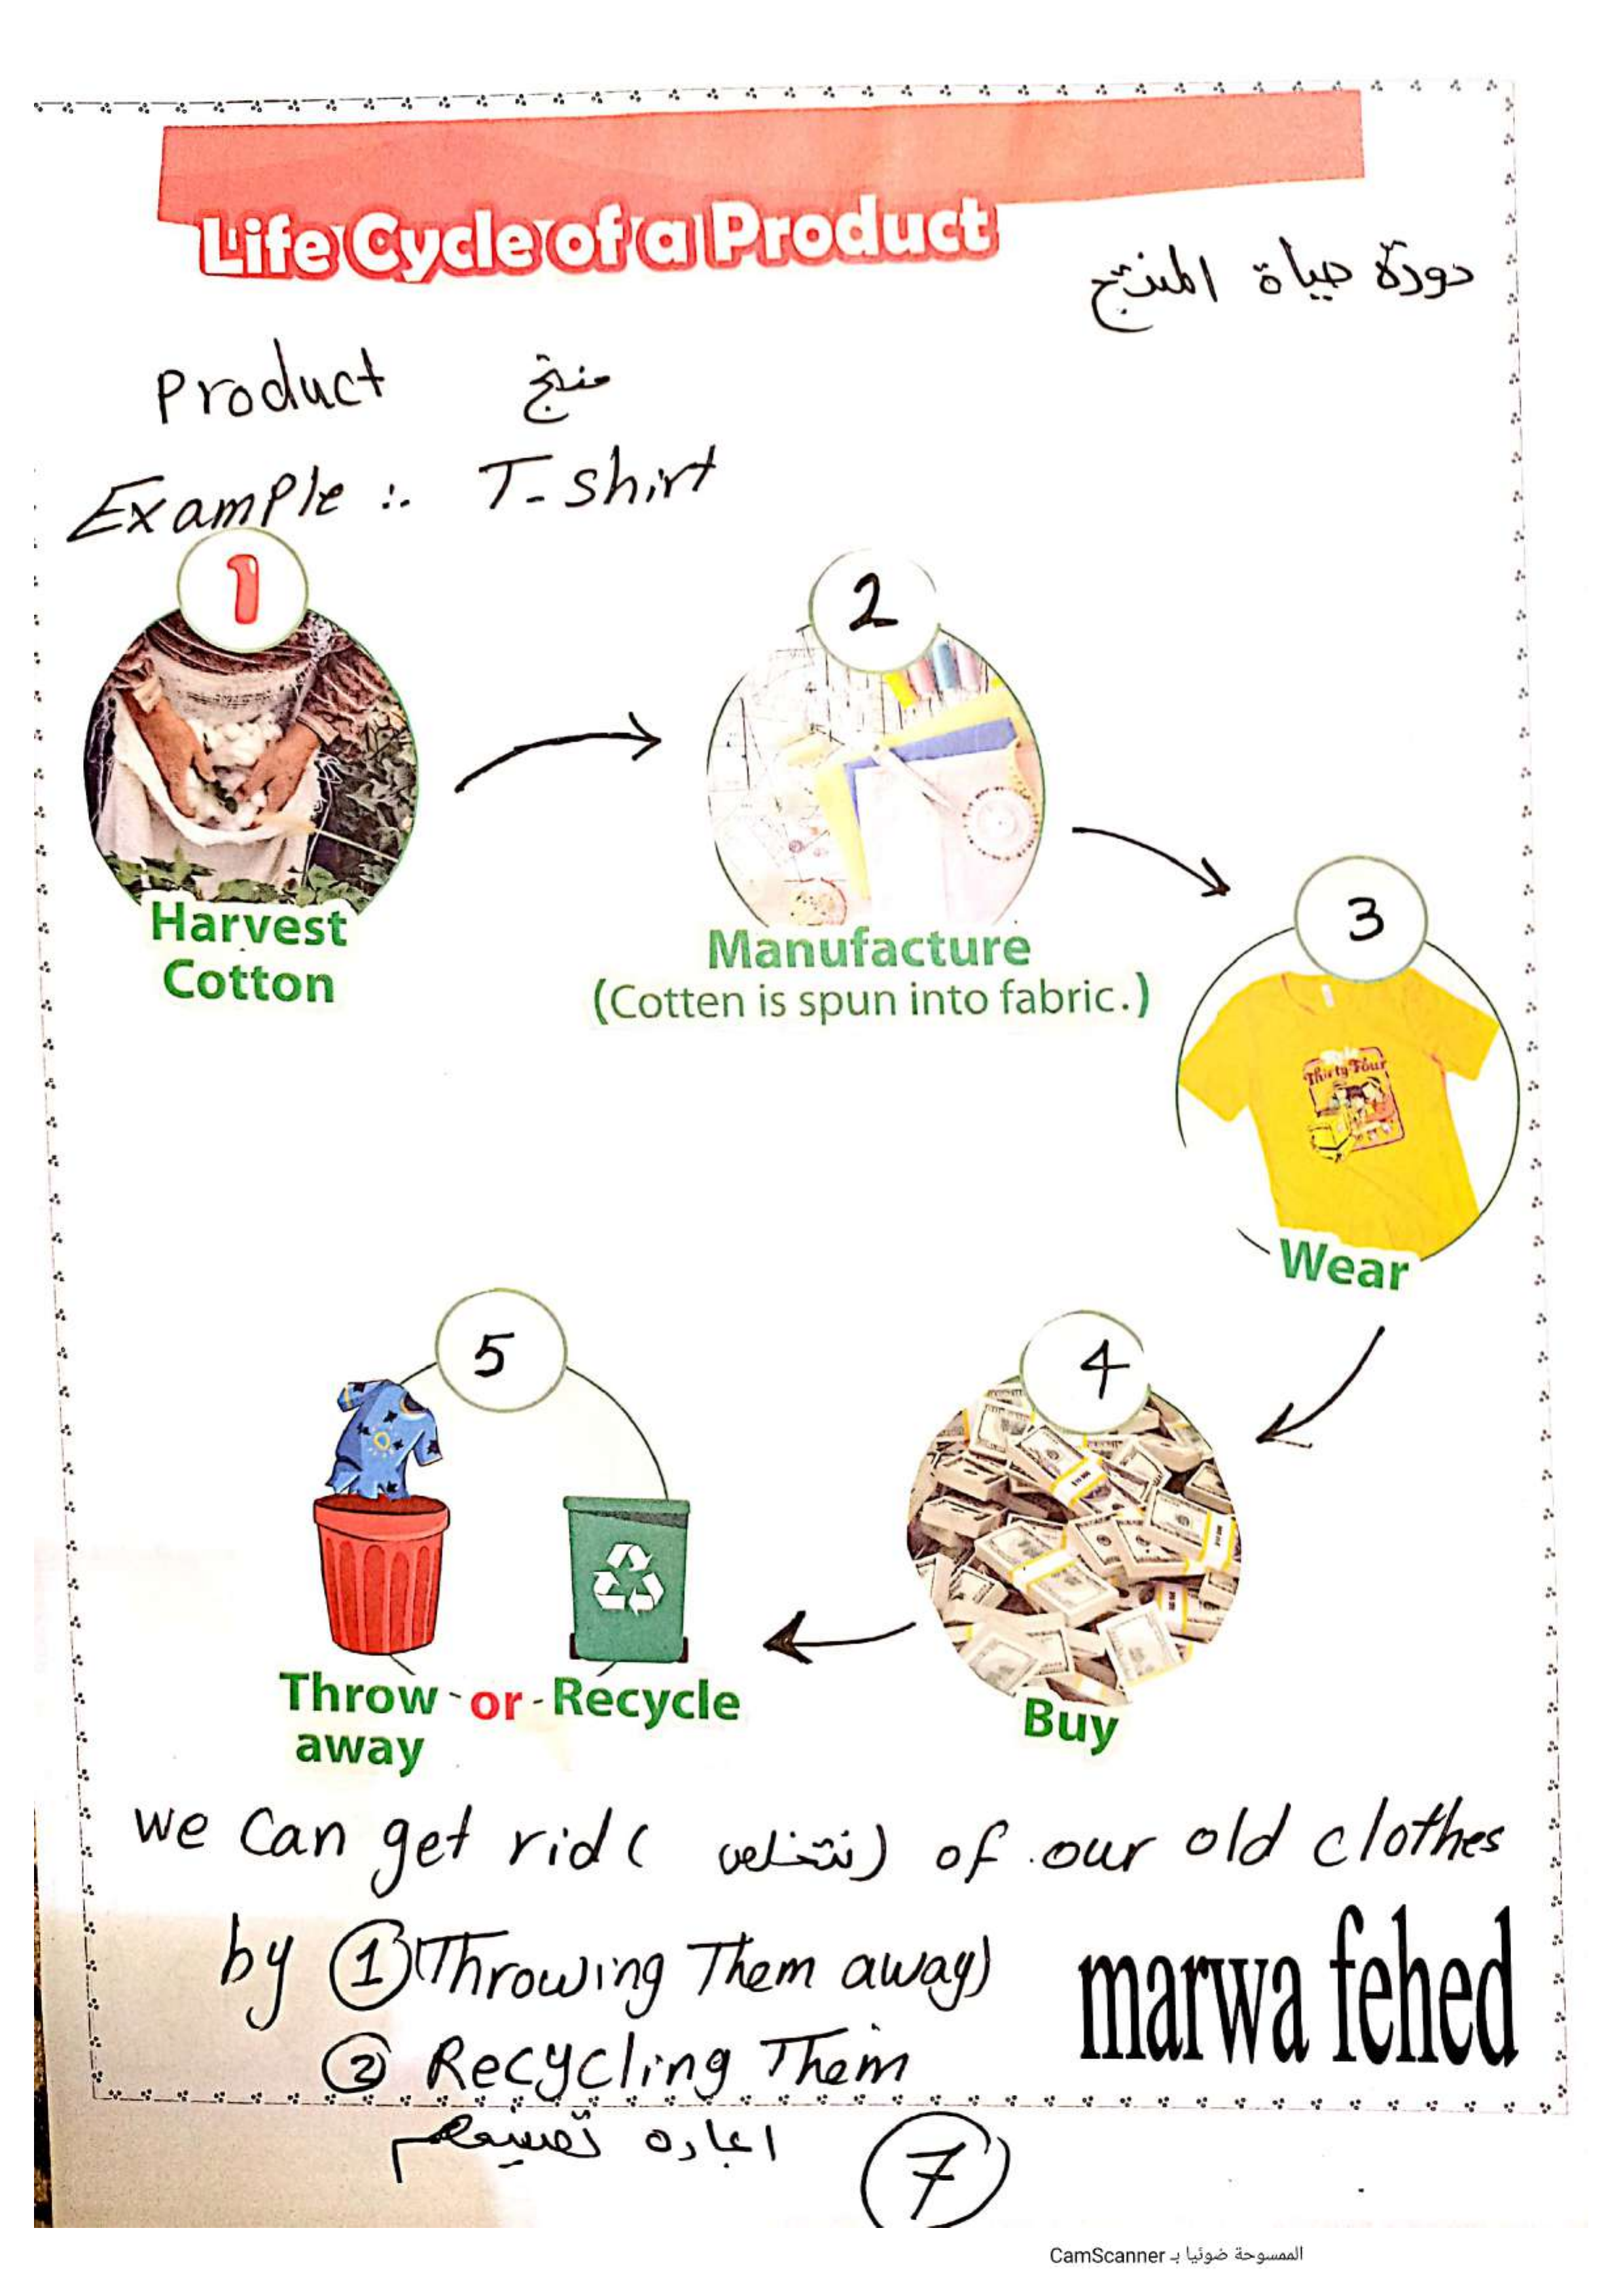 Life Cycle of a Product
دورة حياة المنتج
Product منتج
Example :. T-shirt
1
2
Harvest
Cotton
Manufacture
(Cotten is spun into fabric.)
3
Thirty Four
Wear
5
4
Throw - or - Recycle
away
Buy
we can get rid ( نتخلص ) of our old clothes
by 1 (Throwing Them away)
marwa fehed
2 Recycling Them
اعاده تصنيعهم
7
الممسوحة ضوئيا بـ CamScanner